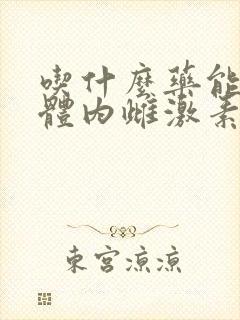 喫什麼藥能
體内雌激素
東宮涼涼